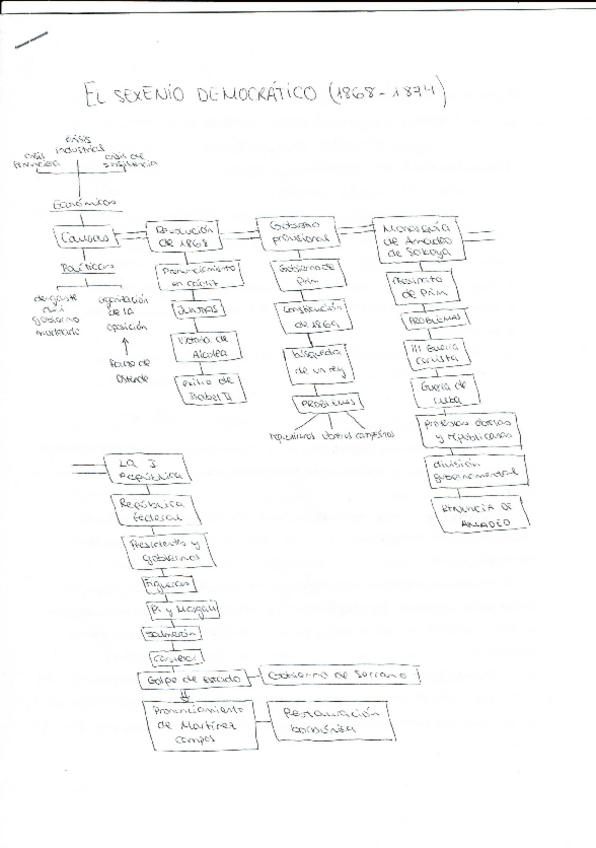 EL SEXENIO DEMOCRÁTICO (1868-1874)
crisis
industrial
crisis
financiera
crisis de
subsistencia
Económicas
Causas
Políticas
desgaste
del
gobierno
moderado
organización
de la
oposición
Pacto de
Ostende
Revolución
de 1868
Pronunciamiento
en Cádiz
JUNTAS
Victoria de
Alcolea
exilio de
Isabel II
Gobierno
provisional
Gobierno de
Prim
Constitución
de 1869
búsqueda
de un rey
PROBLEMAS
republicanos obreros campesinos
Monarquía
de Amadeo
de Saboya
Asesinato
de Prim
PROBLEMAS
III Guerra
Carlista
Guerra de
Cuba
protestas obreras
y republicanas
división
gubernamental
RENUNCIA DE
AMADEO
LA I
República
República
Federal
Presidentes y
gobiernos
Figueras
Pi y Margall
Salmerón
Castelar
Golpe de estado
Gobierno de Serrano
Pronunciamiento
de Martínez
Campos
Restauración
borbónica